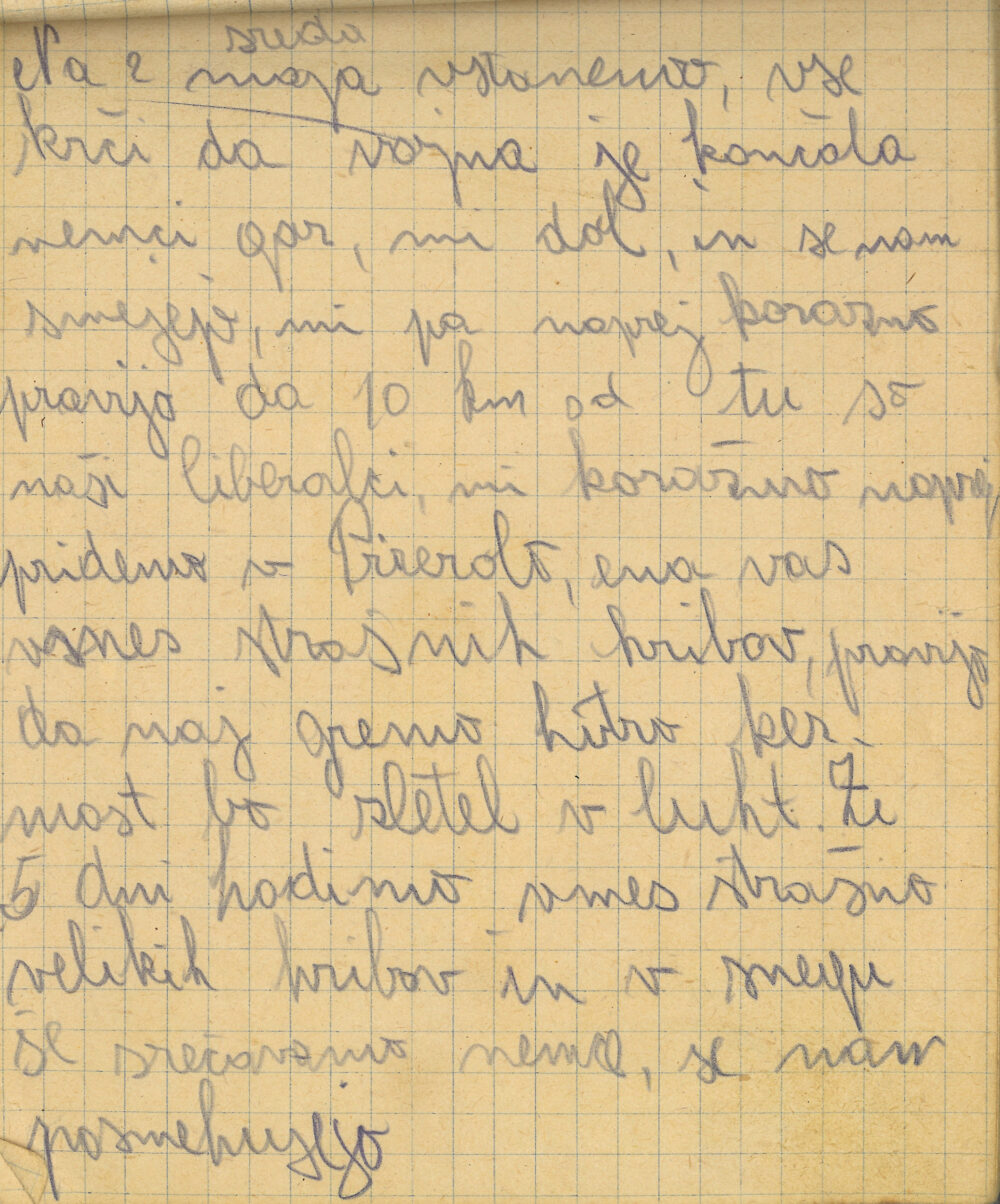 sreda
Na 2 maja vstanemo, vse
krči da vojna je končala
nemci gor, mi dol, in se nam
smejejo, mi pa naprej koražno
pravijo da 10 km od tu so
naši liberalci, mi koražno naprej
pridemo v Prierolt, ena vas
vsnes strašnih hribov, pravijo
da naj gremo hitro ker
most bo zletel v luht. Že
5 dni hodimo vmes strašno
velikih hribov in v snegu
še srečavamo nemce, se nam
posmehujejo